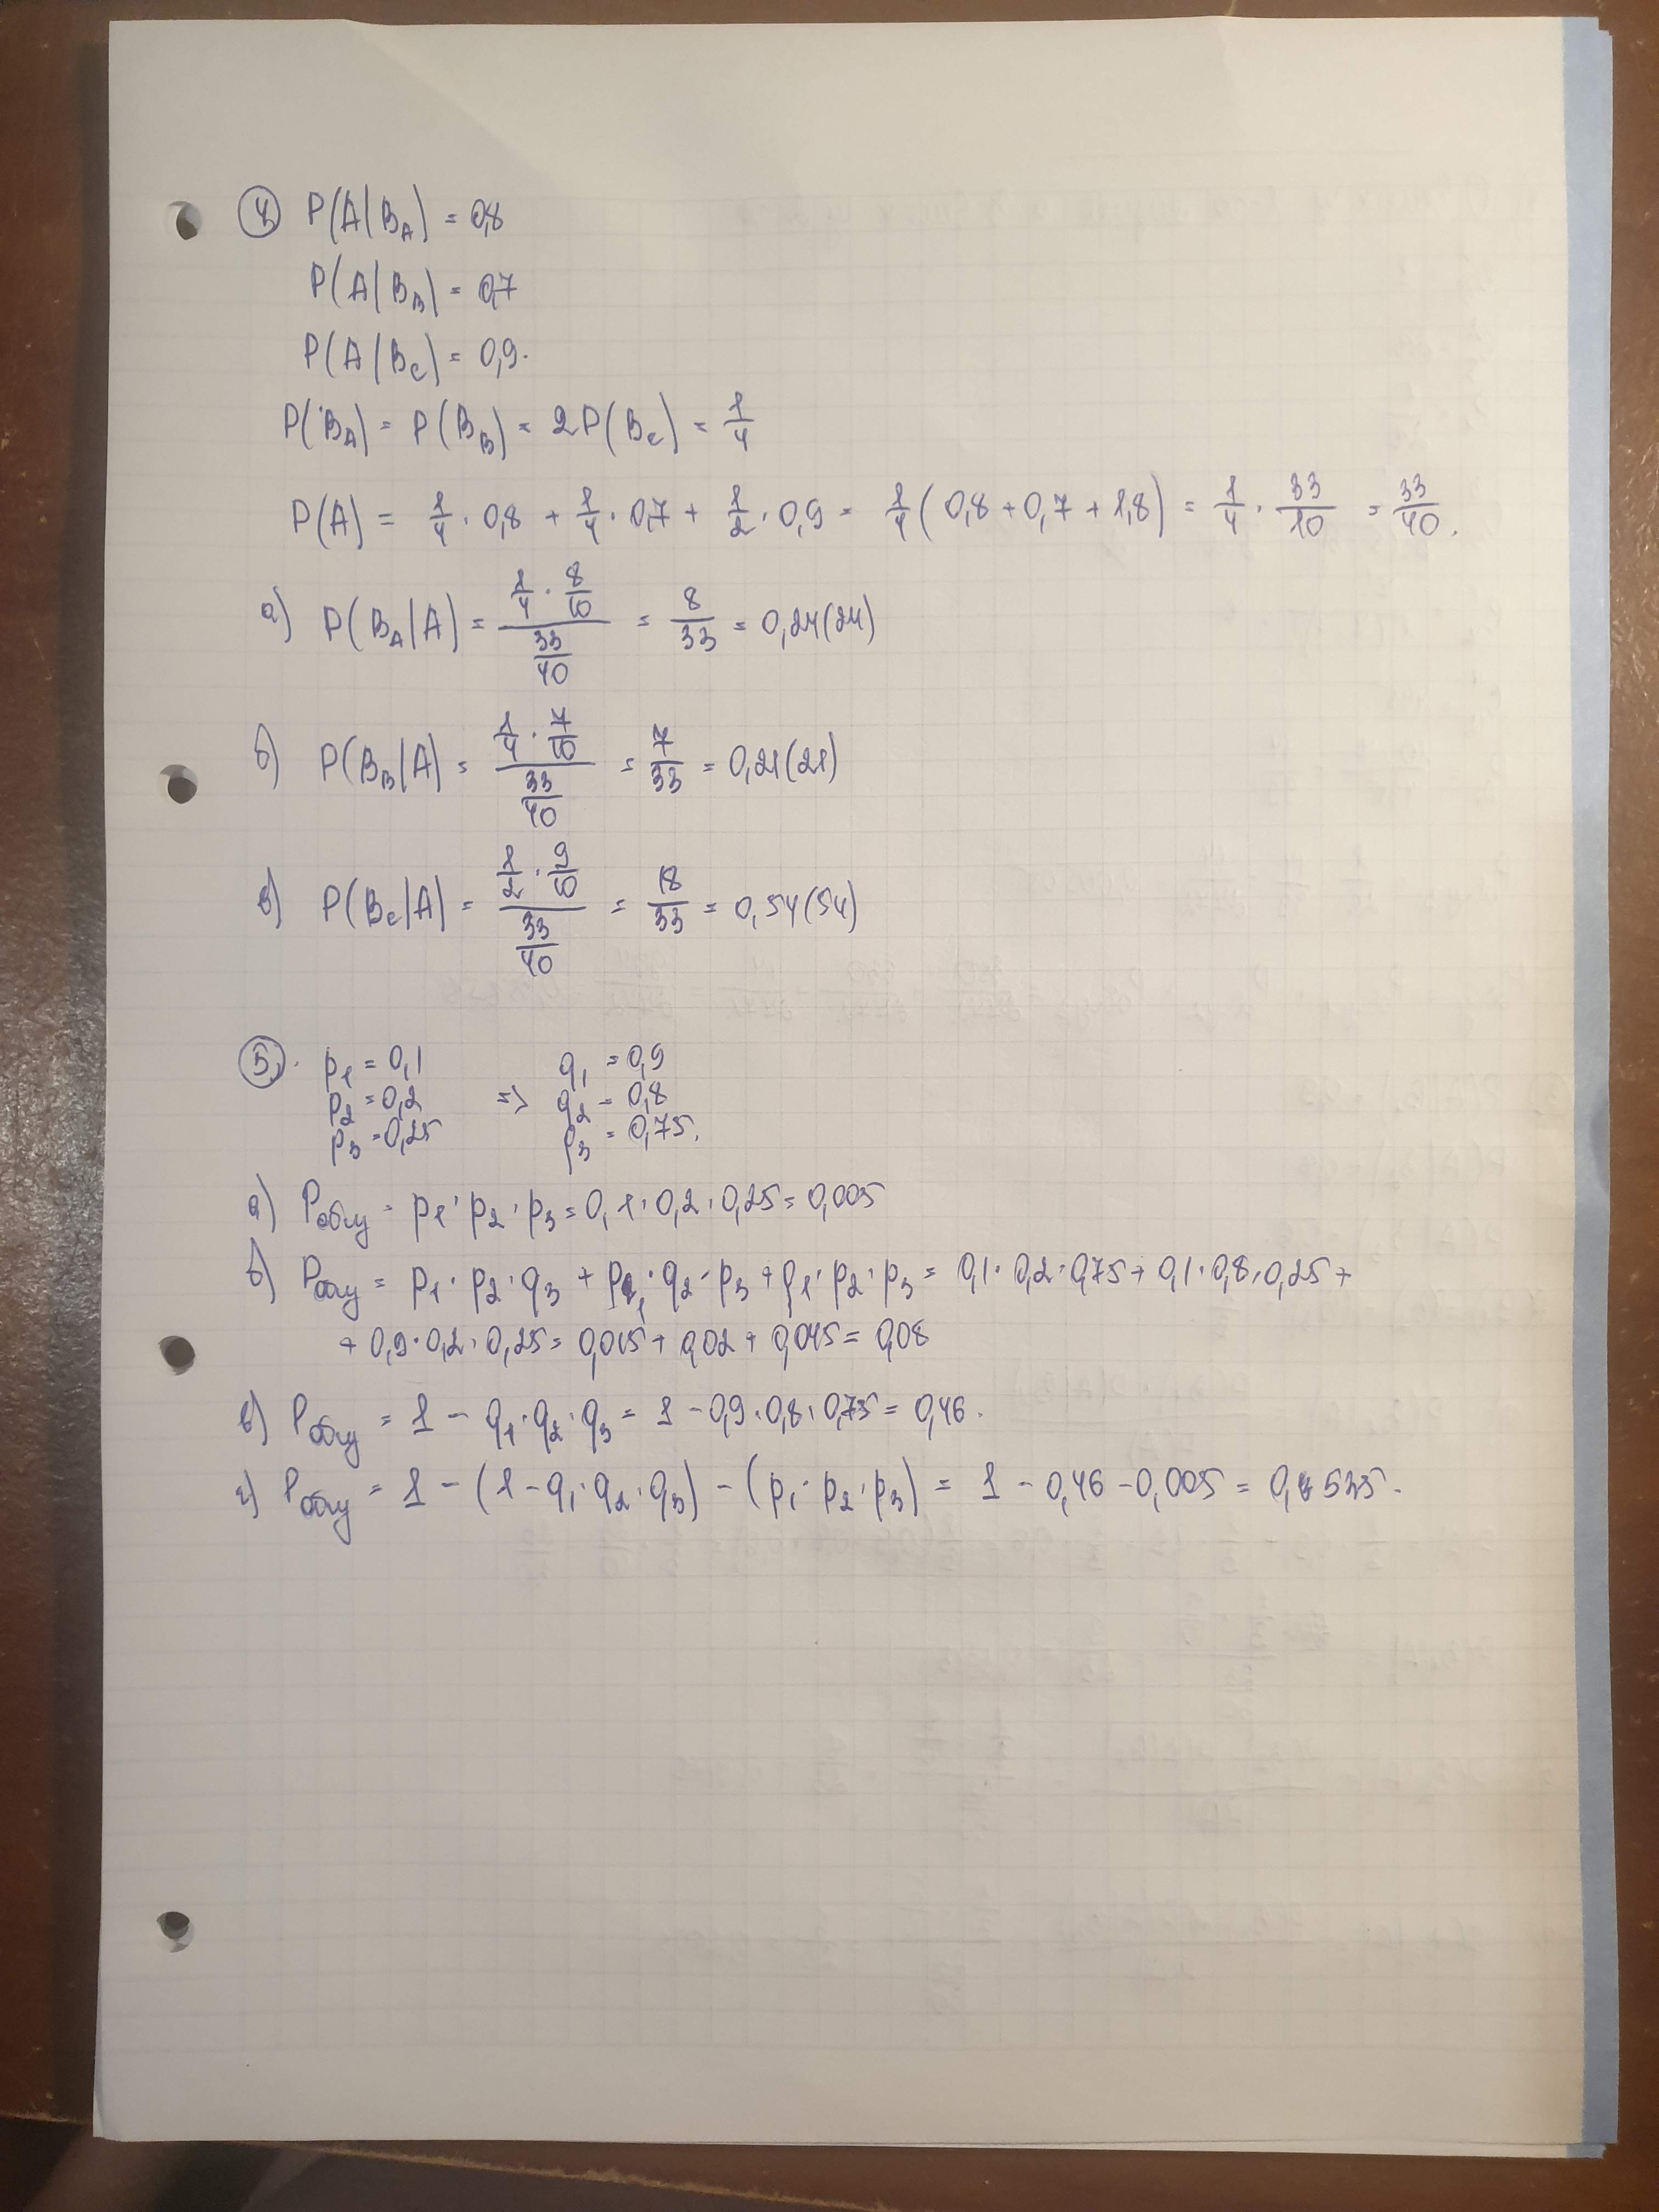 ④ P(A|B_A) = 0,8
P(A|B_B) = 0,7
P(A|B_C) = 0,9.
P(B_A) = P(B_B) = 2P(B_C) = 1/4
P(A) = 1/4 · 0,8 + 1/4 · 0,7 + 1/2 · 0,9 = 1/4 (0,8 + 0,7 + 1,8) = 1/4 · 33/10 = 33/40.
а) P(B_A|A) = (1/4 · 8/10)/(33/40) = 8/33 = 0,24(24)
б) P(B_B|A) = (1/4 · 7/10)/(33/40) = 7/33 = 0,21(21)
в) P(B_C|A) = (1/2 · 9/10)/(33/40) = 18/33 = 0,54(54)
⑤. p₁ = 0,1 q₁ = 0,9
p₂ = 0,2 => q₂ = 0,8
p₃ = 0,25 p₃ = 0,75.
а) P = p₁ · p₂ · p₃ = 0,1 · 0,2 · 0,25 = 0,005
б) P = p₁ · p₂ · q₃ + p₁ · q₂ · p₃ + q₁ · p₂ · p₃ = 0,1 · 0,2 · 0,75 + 0,1 · 0,8 · 0,25 +
+ 0,9 · 0,2 · 0,25 = 0,015 + 0,02 + 0,045 = 0,08
в) P = 1 - q₁ · q₂ · q₃ = 1 - 0,9 · 0,8 · 0,75 = 0,46.
г) P = 1 - (1 - q₁ · q₂ · q₃) - (p₁ · p₂ · p₃) = 1 - 0,46 - 0,005 = 0,535.